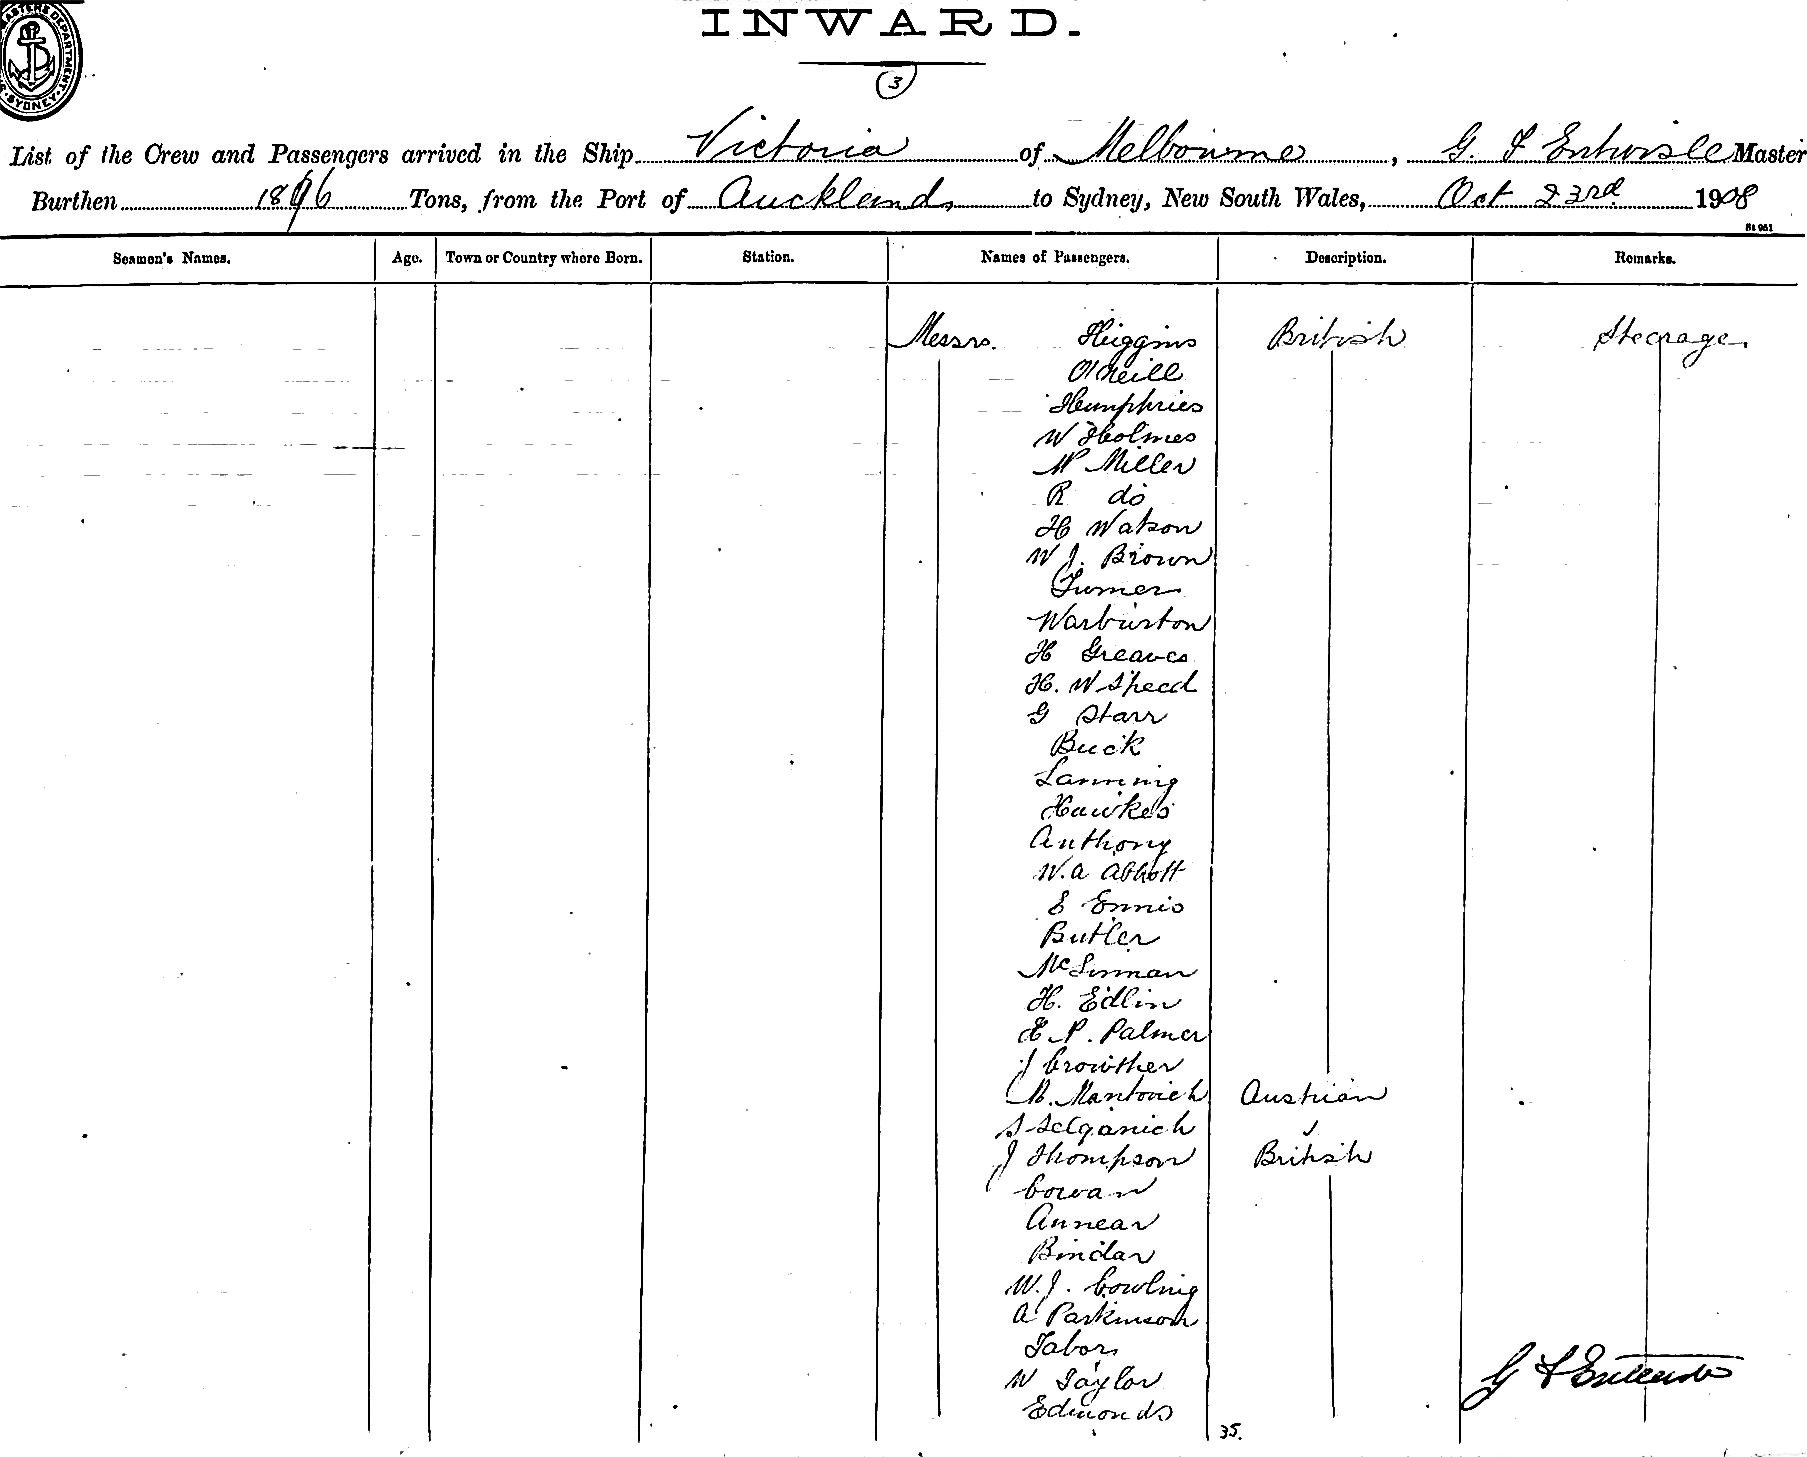 INWARD.
3
List of the Crew and Passengers arrived in the Ship Victoria of Melbourne, G. Entwisle Master
Burthen 1896 Tons, from the Port of Auckland to Sydney, New South Wales, Oct 23rd 1908
Seamen's Names. Age. Town or Country where Born. Station. Names of Passengers. Description. Remarks.
Messrs. Higgins British Steerage
O'Neill
Humphries
W Holmes
W Miller
R do
H Watson
W J. Brown
Turner
Warburton
H Greaves
H. W Speed
G Starr
Buck
Lanning
Hawkes
Anthony
W. A Abbott
E Ennis
Butler
H. Edlin
P. Palmer
J Crowther
M. Mantovich Austrian
S
J Thompson British
Cowan
Annear
Bindar
W. J. Cowling
A Parkinson
Tabor
W Taylor
Edmonds
35.